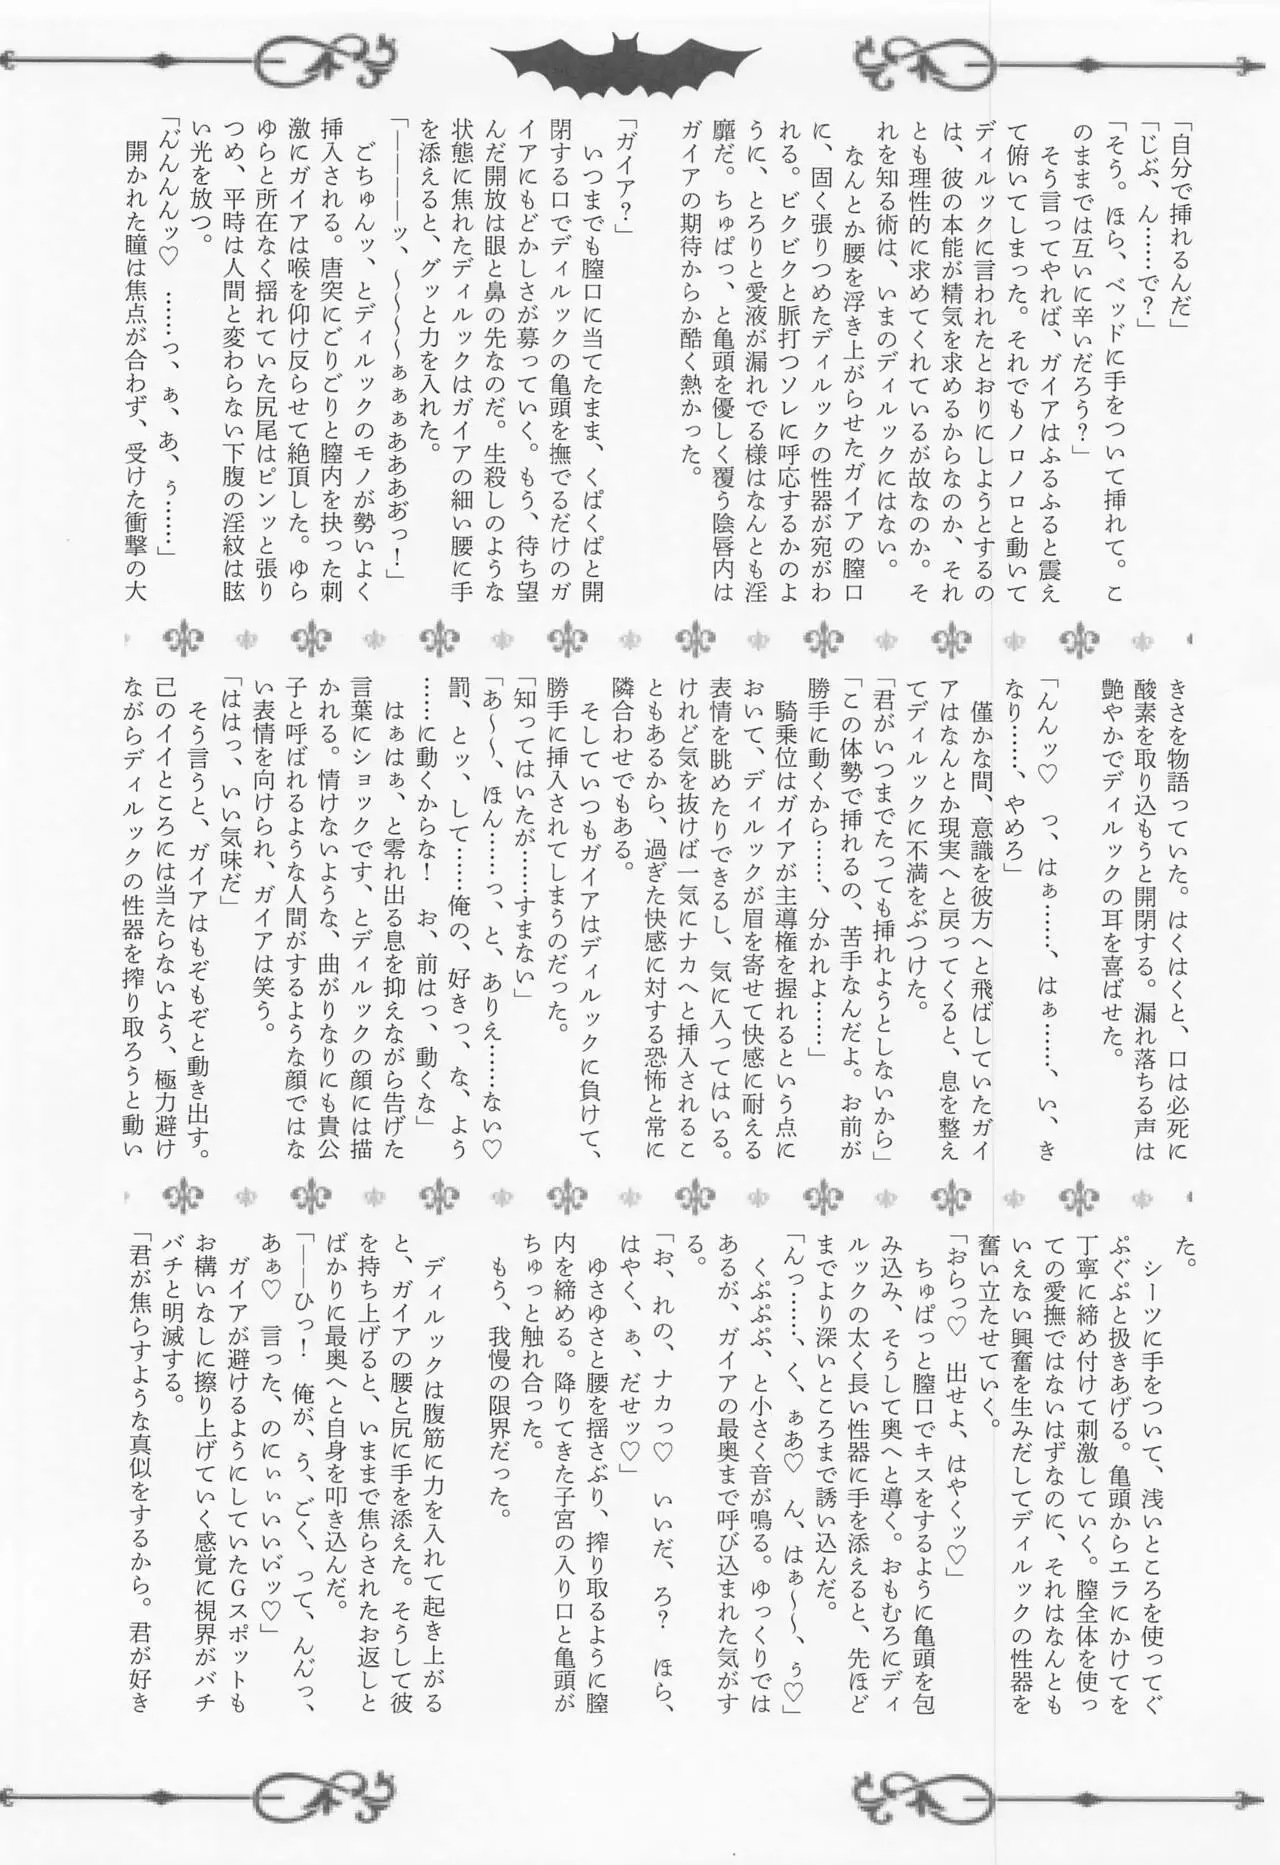 「自分で挿れるんだ」
「じぶ、ん……で?」
「そう。ほら、ベッドに手をついて挿れて。こ
のままでは互いに辛いだろう?」
そう言ってやれば、ガイアはふるふると震え
て俯いてしまった。それでもノロノロと動いて
ディルックに言われたとおりにしようとするの
は、彼の本能が精気を求めるからなのか、それ
とも理性的に求めてくれているが故なのか。そ
れを知る術は、いまのディルックにはない。
なんとか腰を浮き上がらせたガイアの膣口
に、固く張りつめたディルックの性器が宛がわ
れる。ビクビクと脈打つソレに呼応するかのよ
うに、とろりと愛液が漏れでる様はなんとも淫
靡だ。ちゅぱっ、と亀頭を優しく覆う陰唇内は
ガイアの期待からか酷く熱かった。
「ガイア?」
いつまでも膣口に当てたまま、くぱくぱと開
閉する口でディルックの亀頭を撫でるだけのガ
イアにもどかしさが募っていく。もう、待ち望
んだ開放は眼と鼻の先なのだ。生殺しのような
状態に焦れたディルックはガイアの細い腰に手
を添えると、グッと力を入れた。
「————ッ、～～～～ぁぁぁあああぢっ!」
ごちゅんッ、とディルックのモノが勢いよく
挿入される。唐突にごりごりと膣内を抉った刺
激にガイアは喉を仰け反らせて絶頂した。ゆら
ゆらと所在なく揺れていた尻尾はピンッと張り
つめ、平時は人間と変わらない下腹の淫紋は眩
い光を放つ。
「ん゛んんんッ♡ ……っ、ぁ、あ、ぅ……」
開かれた瞳は焦点が合わず、受けた衝撃の大
きさを物語っていた。はくはくと、口は必死に
酸素を取り込もうと開閉する。漏れ落ちる声は
艶やかでディルックの耳を喜ばせた。
「んんッ♡ っ、はぁ……、はぁ……、い、き
なり……、やめろ」
僅かな間、意識を彼方へと飛ばしていたガイ
アはなんとか現実へと戻ってくると、息を整え
てディルックに不満をぶつけた。
「君がいつまでたっても挿れようとしないから」
「この体勢で挿れるの、苦手なんだよ。お前が
勝手に動くから……、分かれよ……」
騎乗位はガイアが主導権を握れるという点に
おいて、ディルックが眉を寄せて快感に耐える
表情を眺めたりできるし、気に入ってはいる。
けれど気を抜けば一気にナカへと挿入されるこ
ともあるから、過ぎた快感に対する恐怖と常に
隣合わせでもある。
そしていつもガイアはディルックに負けて、
勝手に挿入されてしまうのだった。
「知ってはいたが……すまない」
「あ～～、ほん……っ、と、ありえ……ない♡
罰、とッ、して……俺の、好きっ、な、よう
……に動くからな! お、前はっ、動くな」
はぁはぁ、と零れ出る息を抑えながら告げた
言葉にショックです、とディルックの顔には描
かれる。情けないような、曲がりなりにも貴公
子と呼ばれるような人間がするような顔ではな
い表情を向けられ、ガイアは笑う。
「ははっ、いい気味だ」
そう言うと、ガイアはもぞもぞと動き出す。
己のイイところには当たらないよう、極力避け
ながらディルックの性器を搾り取ろうと動い
た。
シーツに手をついて、浅いところを使ってぐ
ぷぐぷと扱きあげる。亀頭からエラにかけてを
丁寧に締め付けて刺激していく。膣全体を使っ
ての愛撫ではないはずなのに、それはなんとも
いえない興奮を生みだしてディルックの性器を
奮い立たせていく。
「おらっ♡ 出せよ、はやくッ♡」
ちゅぱっと膣口でキスをするように亀頭を包
み込み、そうして奥へと導く。おもむろにディ
ルックの太く長い性器に手を添えると、先ほど
までより深いところまで誘い込んだ。
「んっ……、く、ぁあ♡ ん、はぁ～～、ぅ♡」
くぷぷぷ、と小さく音が鳴る。ゆっくりでは
あるが、ガイアの最奥まで呼び込まれた気がす
る。
「お、れの、ナカっ♡ いいだ、ろ? ほら、
はやく、ぁ、だせッ♡」
ゆさゆさと腰を揺さぶり、搾り取るように膣
内を締める。降りてきた子宮の入り口と亀頭が
ちゅっと触れ合った。
もう、我慢の限界だった。
ディルックは腹筋に力を入れて起き上がる
と、ガイアの腰と尻に手を添えた。そうして彼
を持ち上げると、いままで焦らされたお返しと
ばかりに最奥へと自身を叩き込んだ。
「——ひっ! 俺が、う、ごく、って、んん゛っ、
あぁ♡ 言った、のにぃぃいいい゛ッ♡」
ガイアが避けるようにしていたGスポットも
お構いなしに擦り上げていく感覚に視界がバチ
バチと明滅する。
「君が焦らすような真似をするから。君が好き